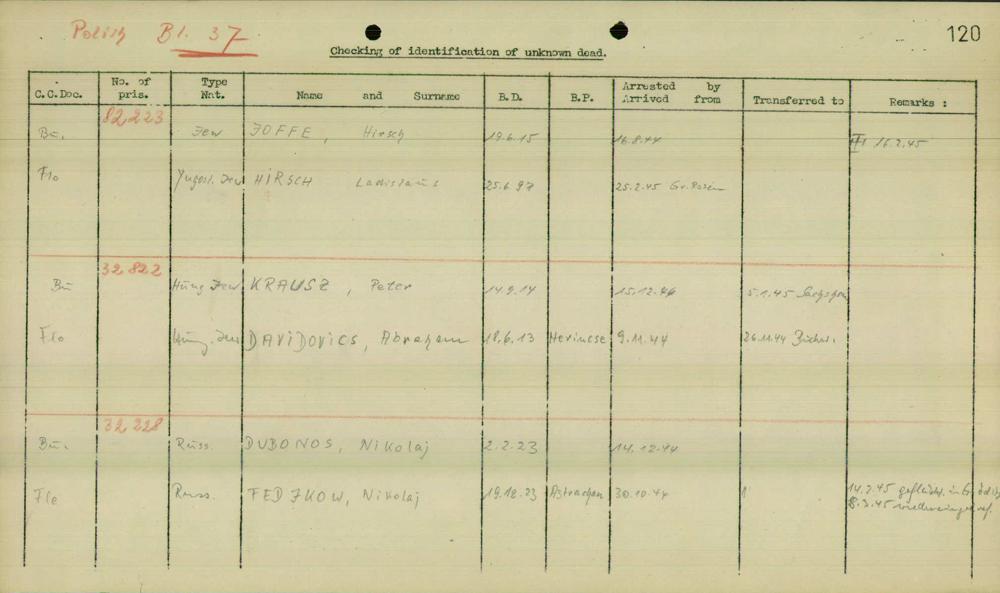 Polish Bl. 37
120
Checking of identification of unknown dead.
C.C.Doc. No. of pris. Type Nat. Name and Surname B.D. B.P. Arrested by Arrived from Transferred to Remarks :
82223
Bu. Jew JOFFE, Hirsch 19.6.15 16.8.44 16.2.45
Flo Yugosl. Jew HIRSCH Ladislaus 25.6.97 25.2.45 Gr. Rosen
32822
Bu Hung Jew KRAUSZ, Peter 14.9.14 15.12.44 5.1.45
Flo Hung. Jew DAVIDOVICS, Abraham 18.6.13 9.11.44 26.11.44 Buchw.
32228
Bu. Russ. DUBONOS, Nikolaj 2.2.23 14.12.44
Flo Russ. FEDJKOW, Nikolaj 19.12.23 Astrachan 30.10.44 14.2.45 in
8.3.45